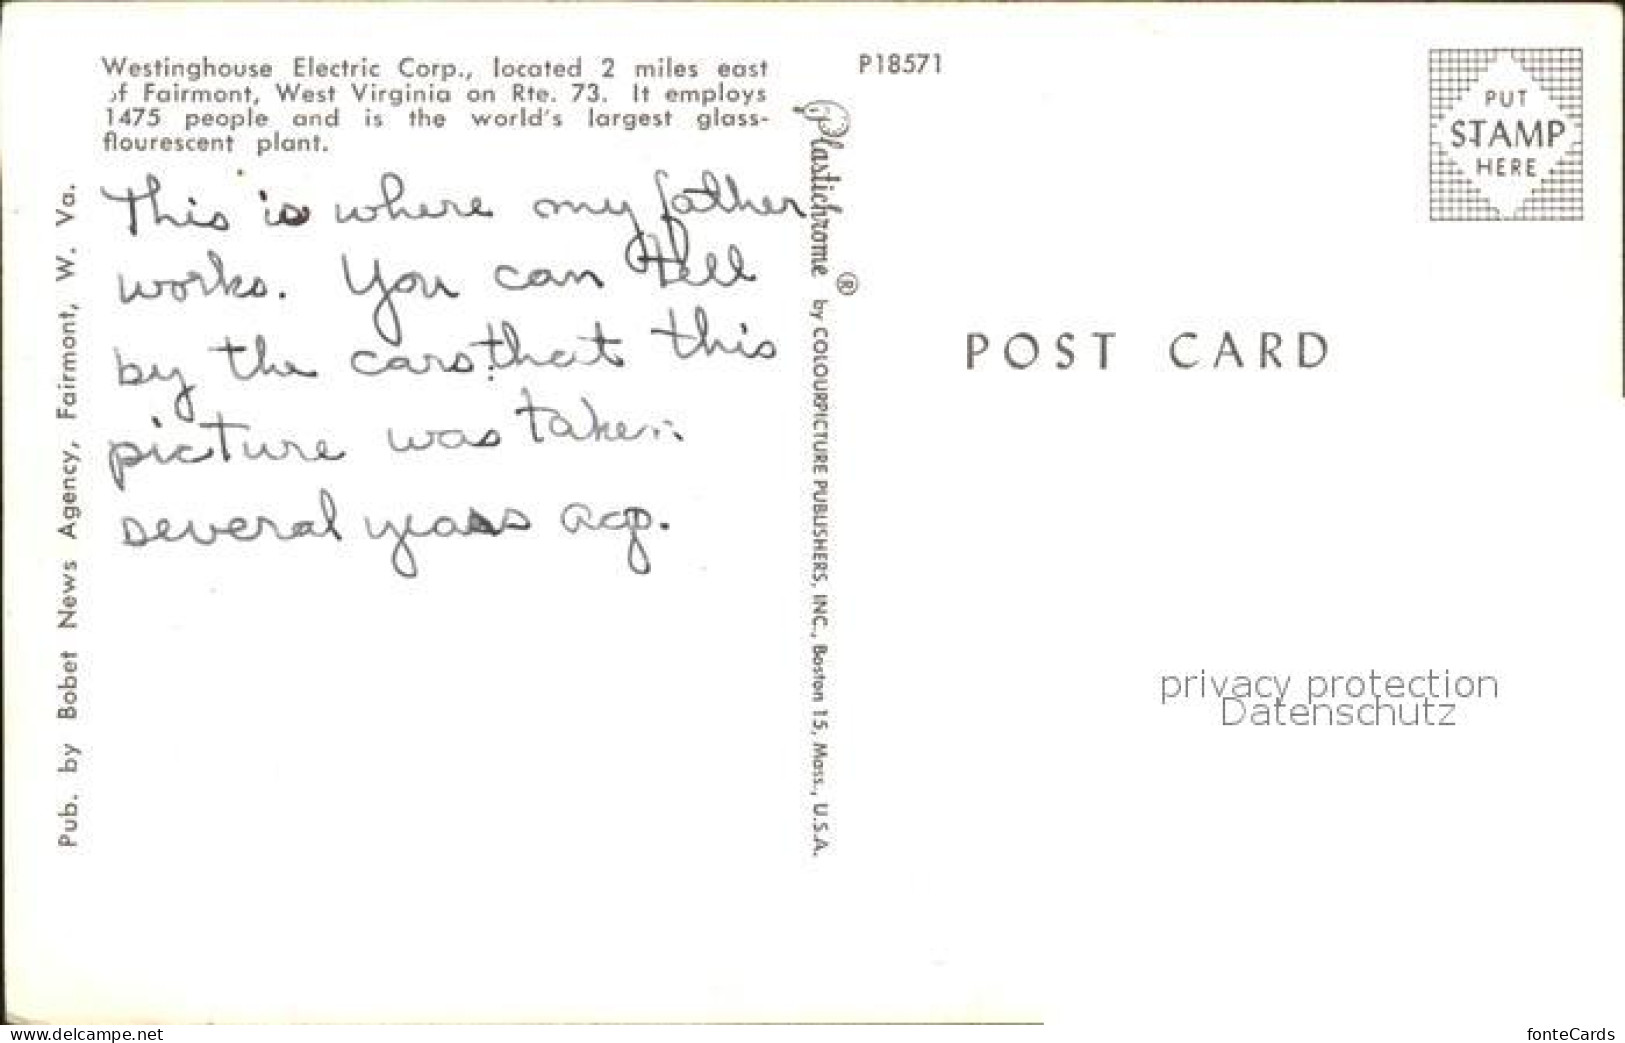 Westinghouse Electric Corp., located 2 miles east
of Fairmont, West Virginia on Rte. 73. It employs
1475 people and is the world's largest glass-
flourescent plant.
This is where my father
works. You can tell
by the cars that this
picture was taken
several years ago.
Pub. by Bobet News Agency, Fairmont, W. Va.
P18571
Plastichrome ® by COLOURPICTURE PUBLISHERS, INC., Boston 15, Mass., U.S.A.
PUT
STAMP
HERE
POST CARD
privacy protection
Datenschutz
www.delcampe.net
fonteCards